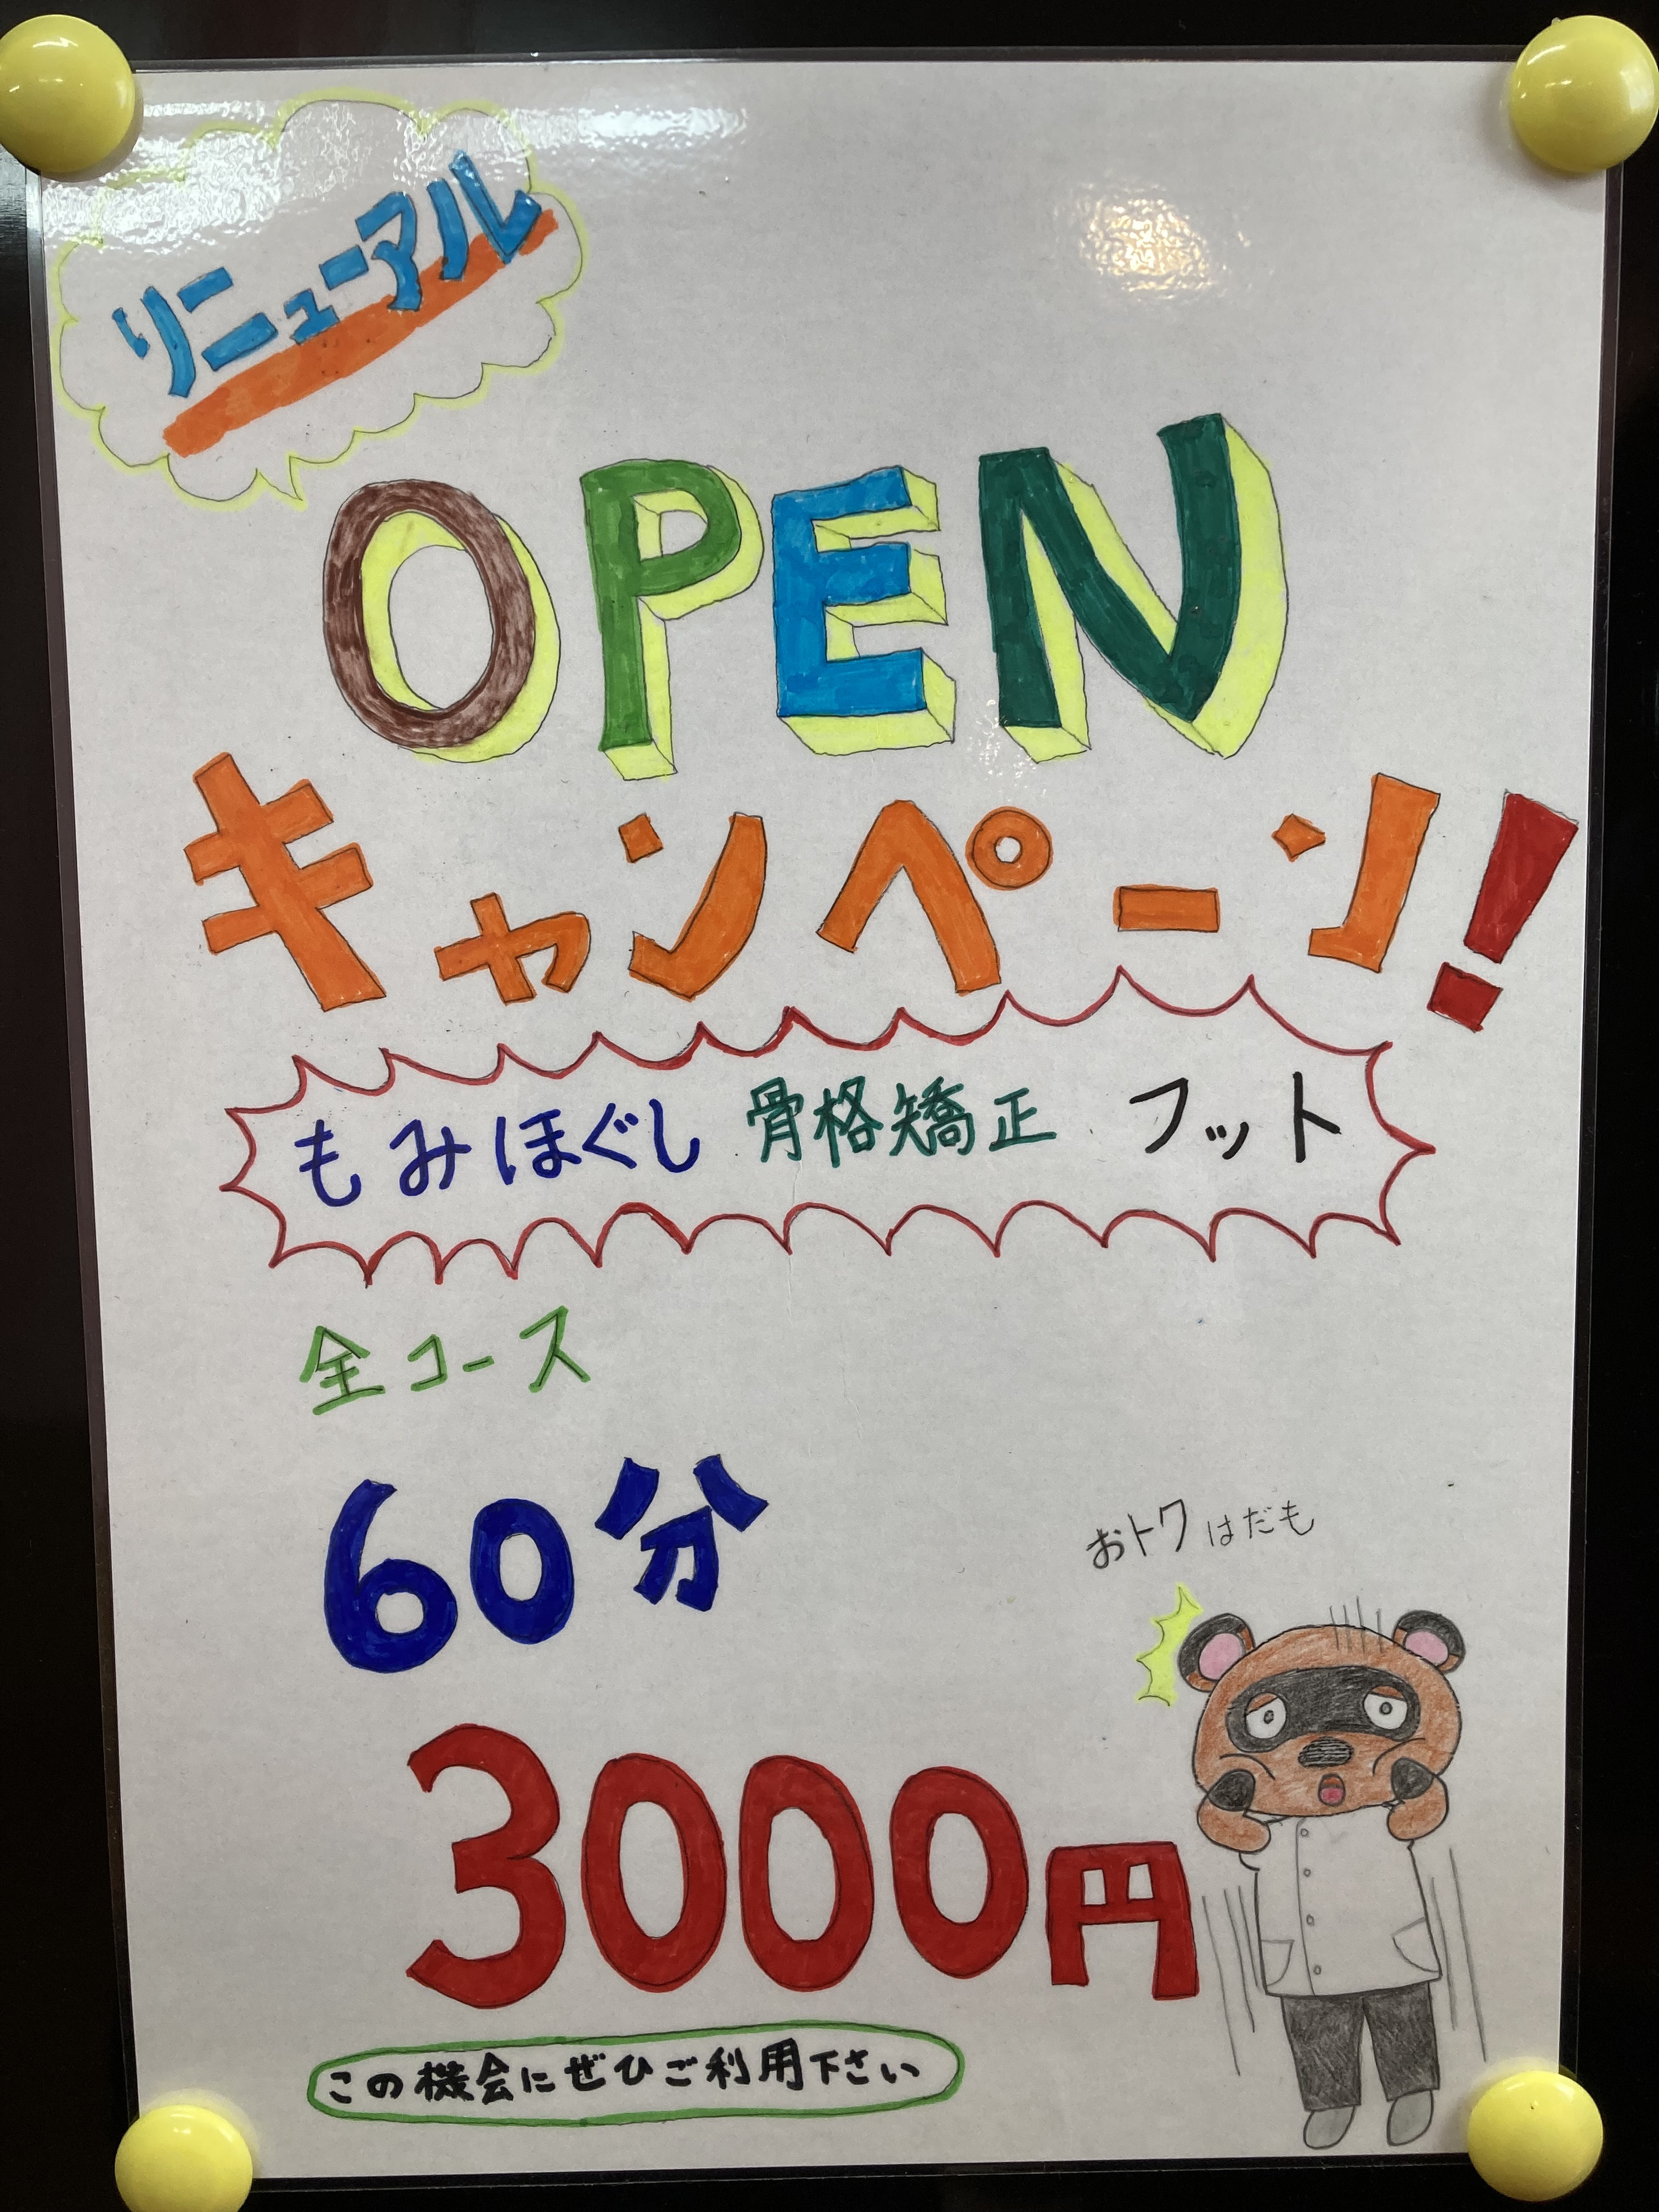 リニューアル
OPEN
キャンペーン!
もみほぐし 骨格矯正 フット
全コース
60分
おトクはだも
3000円
この機会にぜひご利用下さい